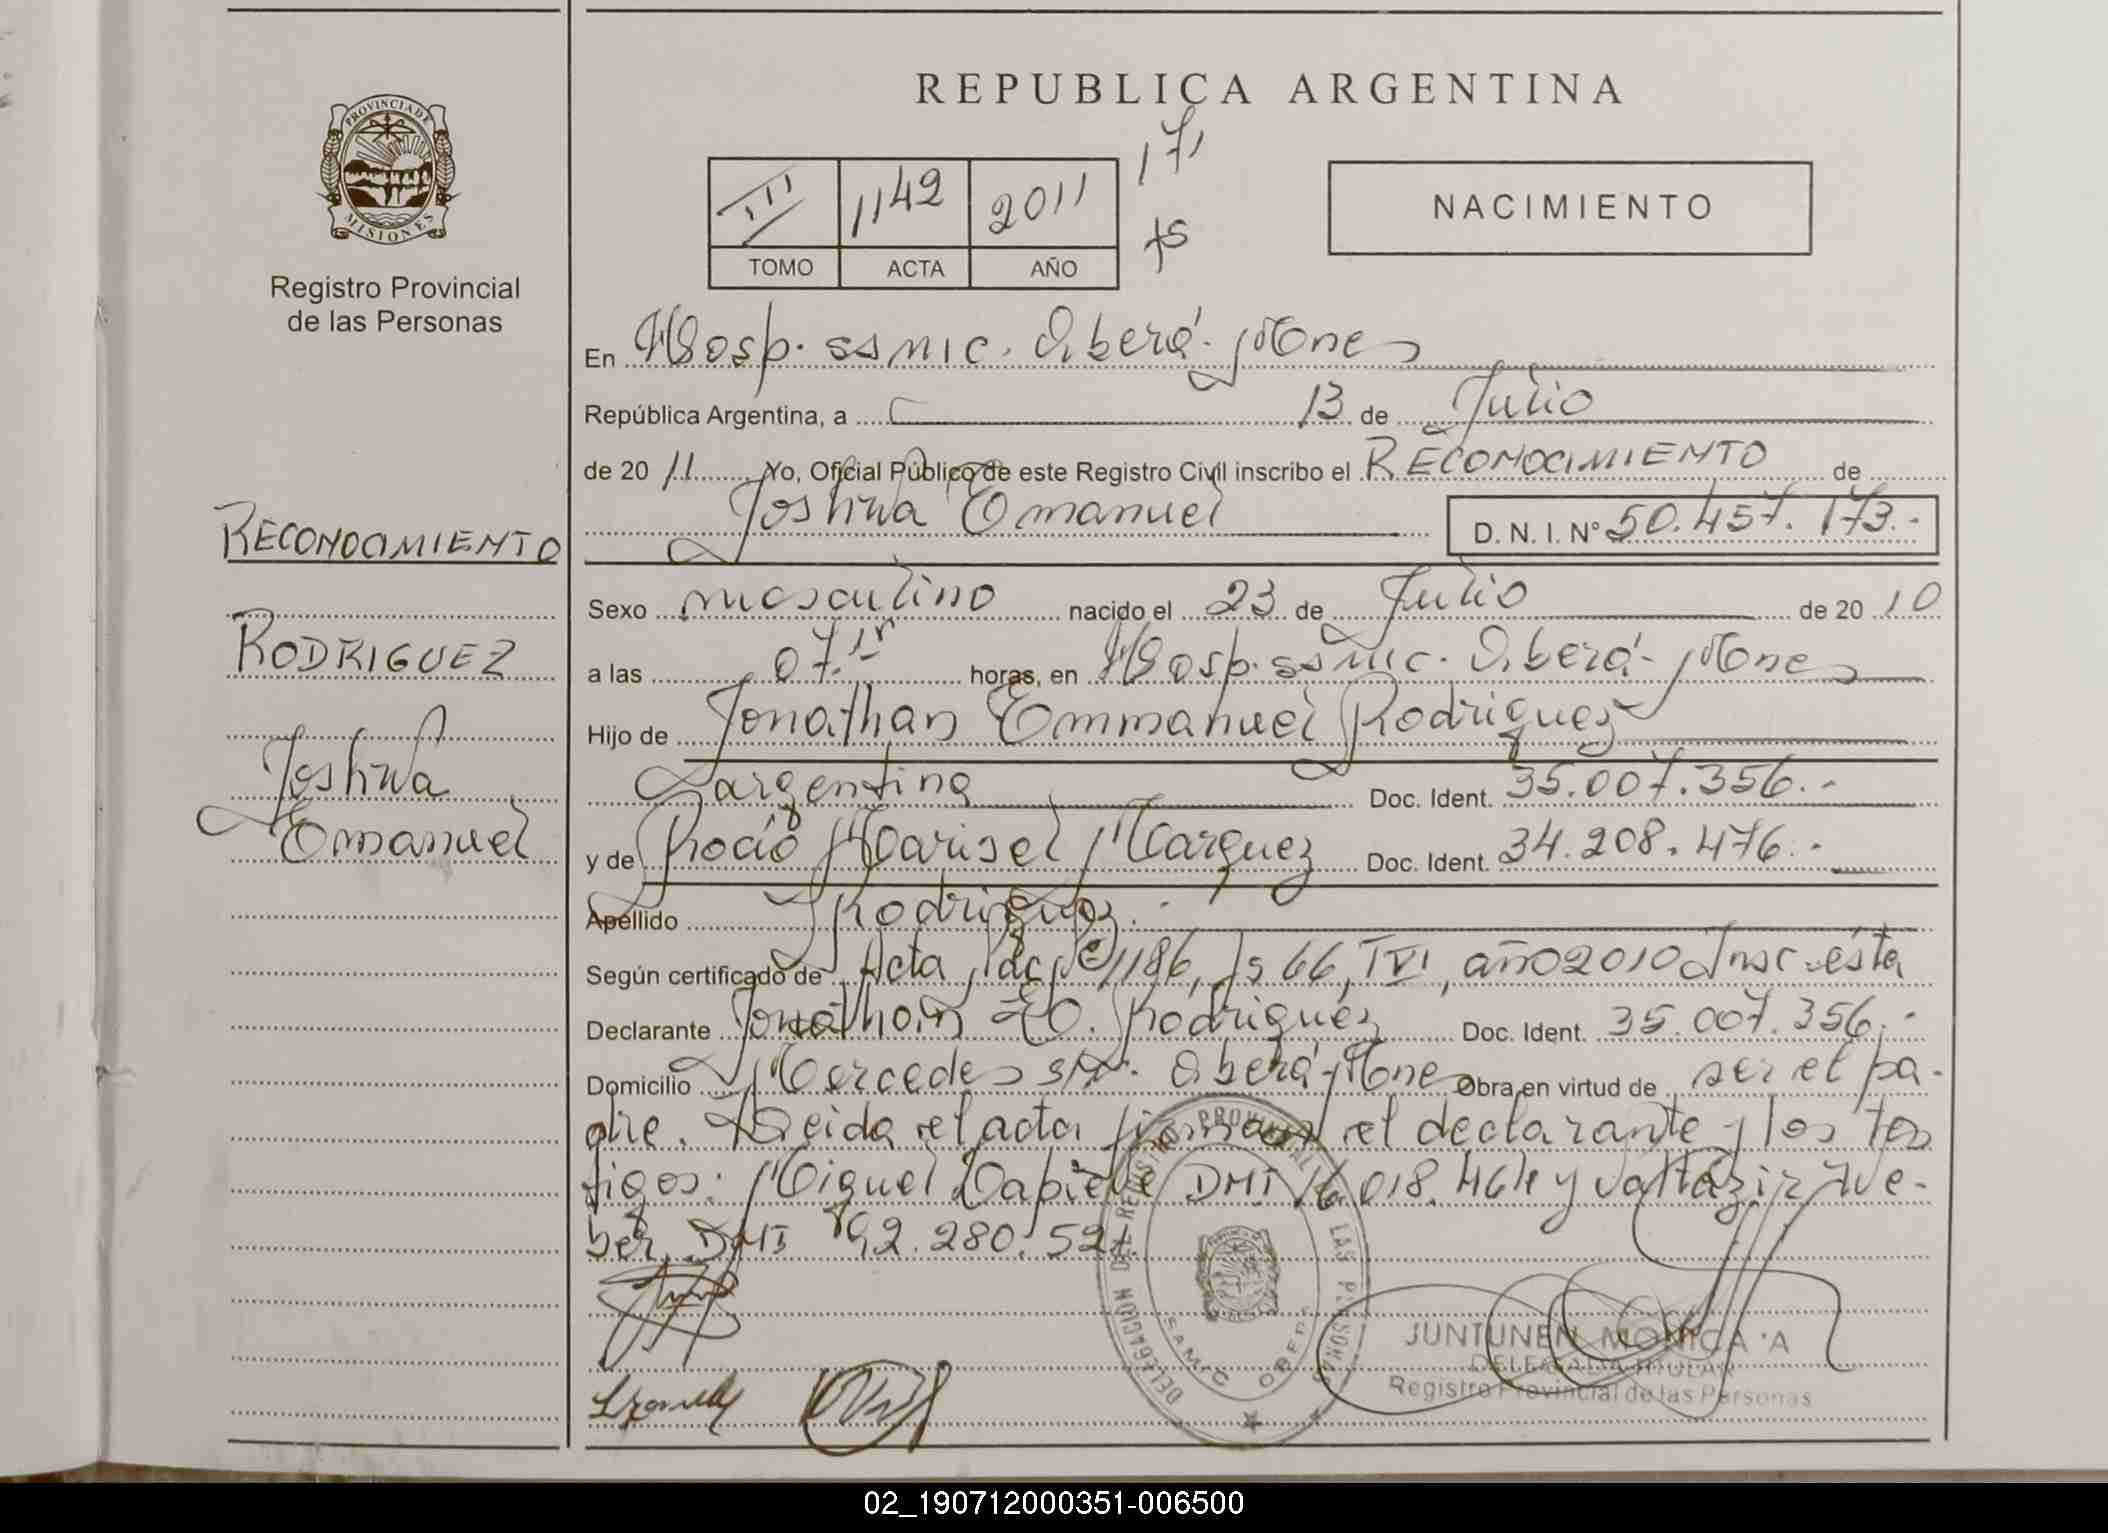 REPUBLICA ARGENTINA
PROVINCIA DE
MISIONES
Registro Provincial
de las Personas
III 1142 2011 171
TOMO ACTA AÑO
NACIMIENTO
En Hosp. ssmic. Oberá. Mnes
República Argentina, a 13 de Julio
de 20 11 Yo, Oficial Público de este Registro Civil inscribo el RECONOCIMIENTO de
Joshua Emanuel D. N. I. N° 50.457.173.-
RECONOCIMIENTO
RODRIGUEZ
Joshua
Emanuel
Sexo masculino nacido el 23 de Julio de 20 10
a las 07.15 horas, en Hosp. ssmic. Oberá- Mnes
Hijo de Jonathan Emmanuel Rodriguez
argentina Doc. Ident. 35.007.356.-
y de Rocío Marisel Marquez Doc. Ident. 34.208.476.-
Apellido Rodriguez.-
Según certificado de Acta Nac 1186, fs 66, TVI, año 2010 Insc. ésta
Declarante Jonathan E. Rodriguez Doc. Ident. 35.007.356.-
Domicilio Mercedes s/n. Oberá- Mnes Obra en virtud de ser el pa-
dre. Leida el acta firman el declarante y los tes
tigos: Miguel DNI 16.018.464 y Valtazir We-
ber DNI 92.280.521.
DELEGACION DEL REGISTRO PROVINCIAL DE LAS PERSONAS
SAMIC OBERA
JUNTUNEN MONICA A
DELEGADA TITULAR
Registro Provincial de las Personas
02_190712000351-006500